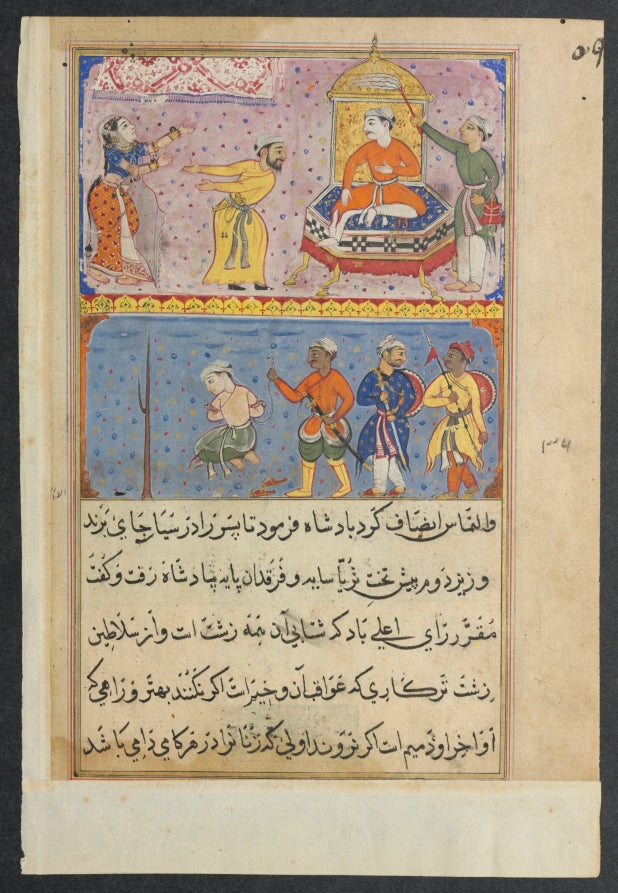 والتماس انصاف کرد بادشاه فرمود تا پسر را در جای برند
وزیر دوم پیش تخت ثریا سایه و فرقدان پایه پادشاه رفت و کفت
مقرر رای اعلی باد که شتابی آن همه زشت است و از سلاطین
زشت تر کاری که عواقب آن است اکر نکنند بهتر و راهی که
اواخر او ذمیم است اکر نروند اولی که زنانرا در هر کامی دامی باشد